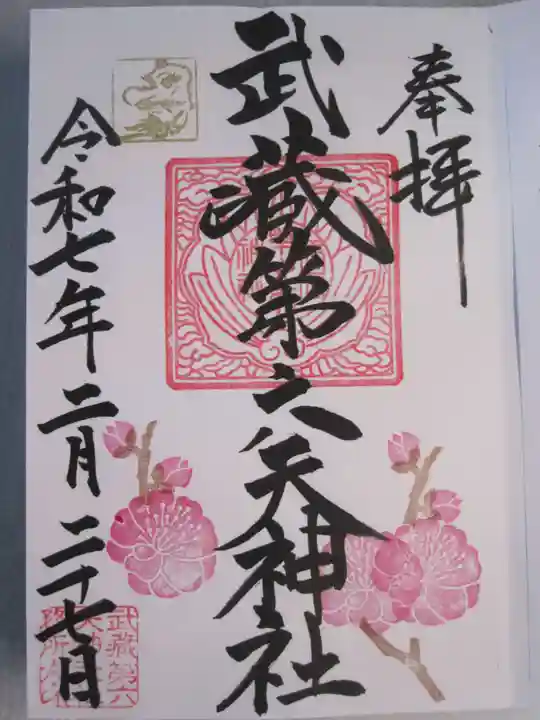 奉拝
武蔵第六天神社
令和七年二月二十七日
武蔵第六